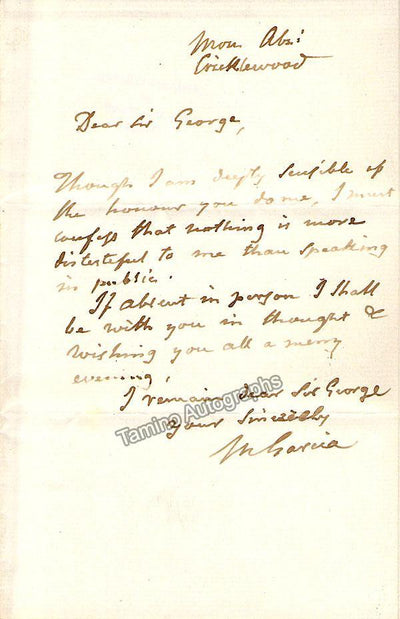 Mon Abri
Cricklewood
Dear Sir George,
Though I am deeply sensible of
the honour you do me, I must
confess that nothing is more
distasteful to me than speaking
in public.
If absent in person I shall
be with you in thought &
wishing you all a merry
evening,
I remain dear Sir George
your sincerely
M Garcia
Tamino Autographs